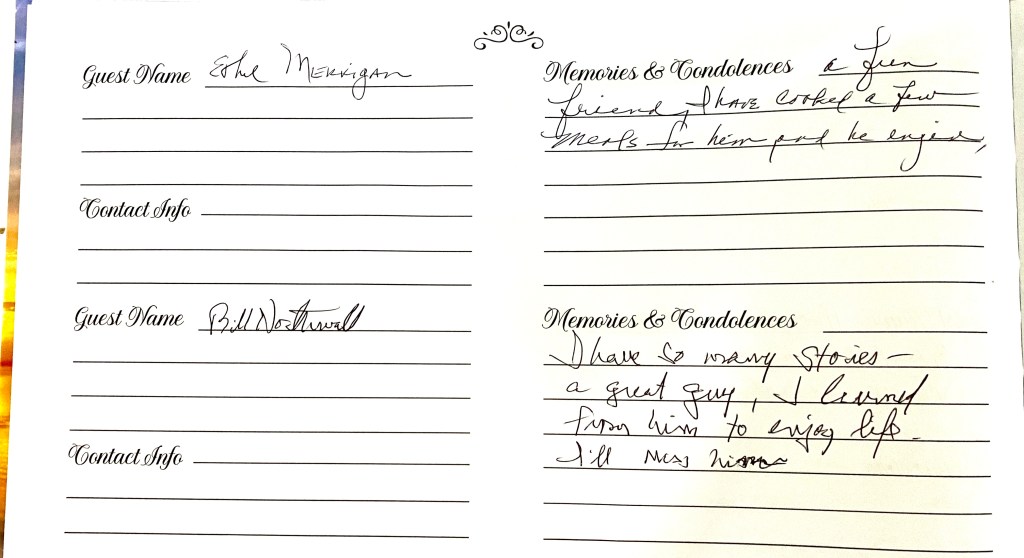 Guest Name Ethel Merrigan
Memories & Condolences a fun
friend, I have cooked a few
meals for him and he enjoed,
Contact Info
Guest Name Bill Northwall
Memories & Condolences
I have so many stories –
a great guy, I learned
from him to enjoy life.
I'll miss him
Contact Info